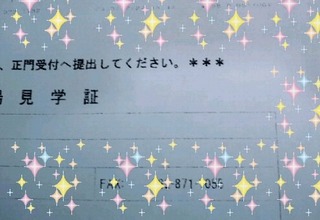 、正門受付へ提出してください。＊＊＊
見学証
FAX: 871